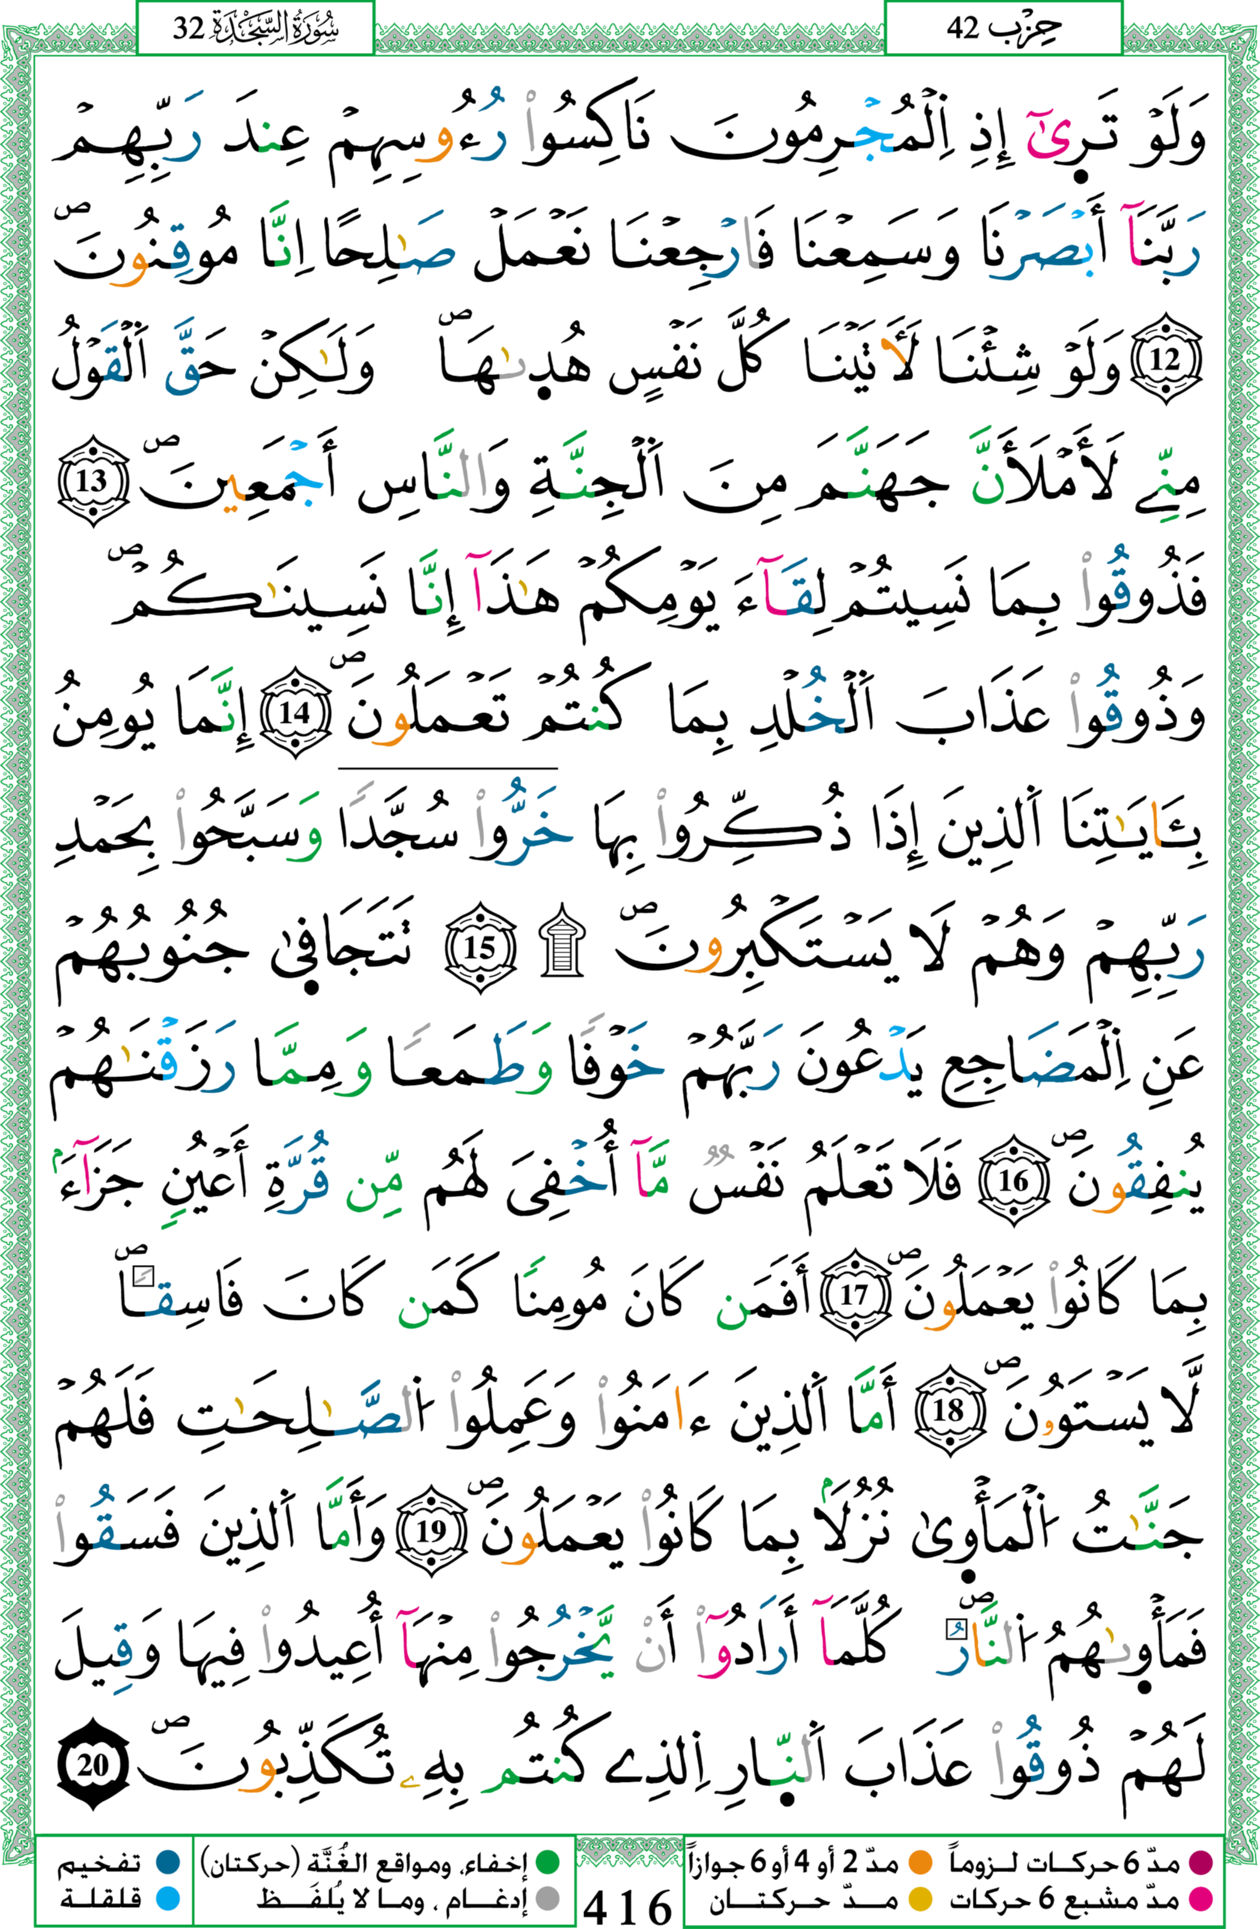 سُورَةُ السَّجْدَة 32
حِزْب 42
وَلَوْ تَرِىٰٓ إِذِ اِ۬لْمُجْرِمُونَ نَاكِسُواْ رُءُوسِهِمْ عِندَ رَبِّهِمْ
رَبَّنَآ أَبْصَرْنَا وَسَمِعْنَا فَارْجِعْنَا نَعْمَلْ صَٰلِحًا اِنَّا مُوقِنُونَۖ
12 وَلَوْ شِئْنَا لَأٓتَيْنَا كُلَّ نَفْسٍ هُدِىٰهَاۖ وَلَٰكِنْ حَقَّ اَ۬لْقَوْلُ
مِنِّے لَأَمْلَأَنَّ جَهَنَّمَ مِنَ اَ۬لْجِنَّةِ وَالنَّاسِ أَجْمَعِينَۖ 13
فَذُوقُواْ بِمَا نَسِيتُمْ لِقَآءَ يَوْمِكُمْ هَٰذَآ إِنَّا نَسِينَٰكُمْۖ
وَذُوقُواْ عَذَابَ اَ۬لْخُلْدِ بِمَا كُنتُمْ تَعْمَلُونَۖ 14 إِنَّمَا يُومِنُ
بِـَٔايَٰتِنَا اَ۬لذِينَ إِذَا ذُكِّرُواْ بِهَا خَرُّواْ سُجَّدًا وَسَبَّحُواْ بِحَمْدِ
رَبِّهِمْ وَهُمْ لَا يَسْتَكْبِرُونَۖ ۩ 15 تَتَجَافِىٰ جُنُوبُهُمْ
عَنِ اِ۬لْمَضَاجِعِ يَدْعُونَ رَبَّهُمْ خَوْفًا وَطَمَعًا وَمِمَّا رَزَقْنَٰهُمْ
يُنفِقُونَۖ 16 فَلَا تَعْلَمُ نَفْسٌ مَّآ أُخْفِىَ لَهُم مِّن قُرَّةِ أَعْيُنٍ جَزَآءَۢ
بِمَا كَانُواْ يَعْمَلُونَۖ 17 أَفَمَن كَانَ مُومِنًا كَمَن كَانَ فَاسِقًاۖ
لَّا يَسْتَوُۥنَۖ 18 أَمَّا اَ۬لذِينَ ءَامَنُواْ وَعَمِلُواْ اُ۬لصَّٰلِحَٰتِ فَلَهُمْ
جَنَّٰتُ اُ۬لْمَأْوِىٰ نُزُلَاۢ بِمَا كَانُواْ يَعْمَلُونَۖ 19 وَأَمَّا اَ۬لذِينَ فَسَقُواْ
فَمَأْوِىٰهُمُ اُ۬لنَّارُۖ كُلَّمَآ أَرَادُوٓاْ أَنْ يَّخْرُجُواْ مِنْهَآ أُعِيدُواْ فِيهَا وَقِيلَ
لَهُمْ ذُوقُواْ عَذَابَ اَ۬لنّ۪ارِ اِ۬لذِے كُنتُم بِهِۦ تُكَذِّبُونَۖ 20
مدّ 6 حركات لـزوماً
مدّ 2 أو 4 أو 6 جوازاً
إخفاء، ومواقع الغُنَّة (حركتان)
تفخيم
مدّ مشبع 6 حركات
مـدّ حـركتـان
إدغـام ، ومـا لا يُلفَـظ
قلقلة
416